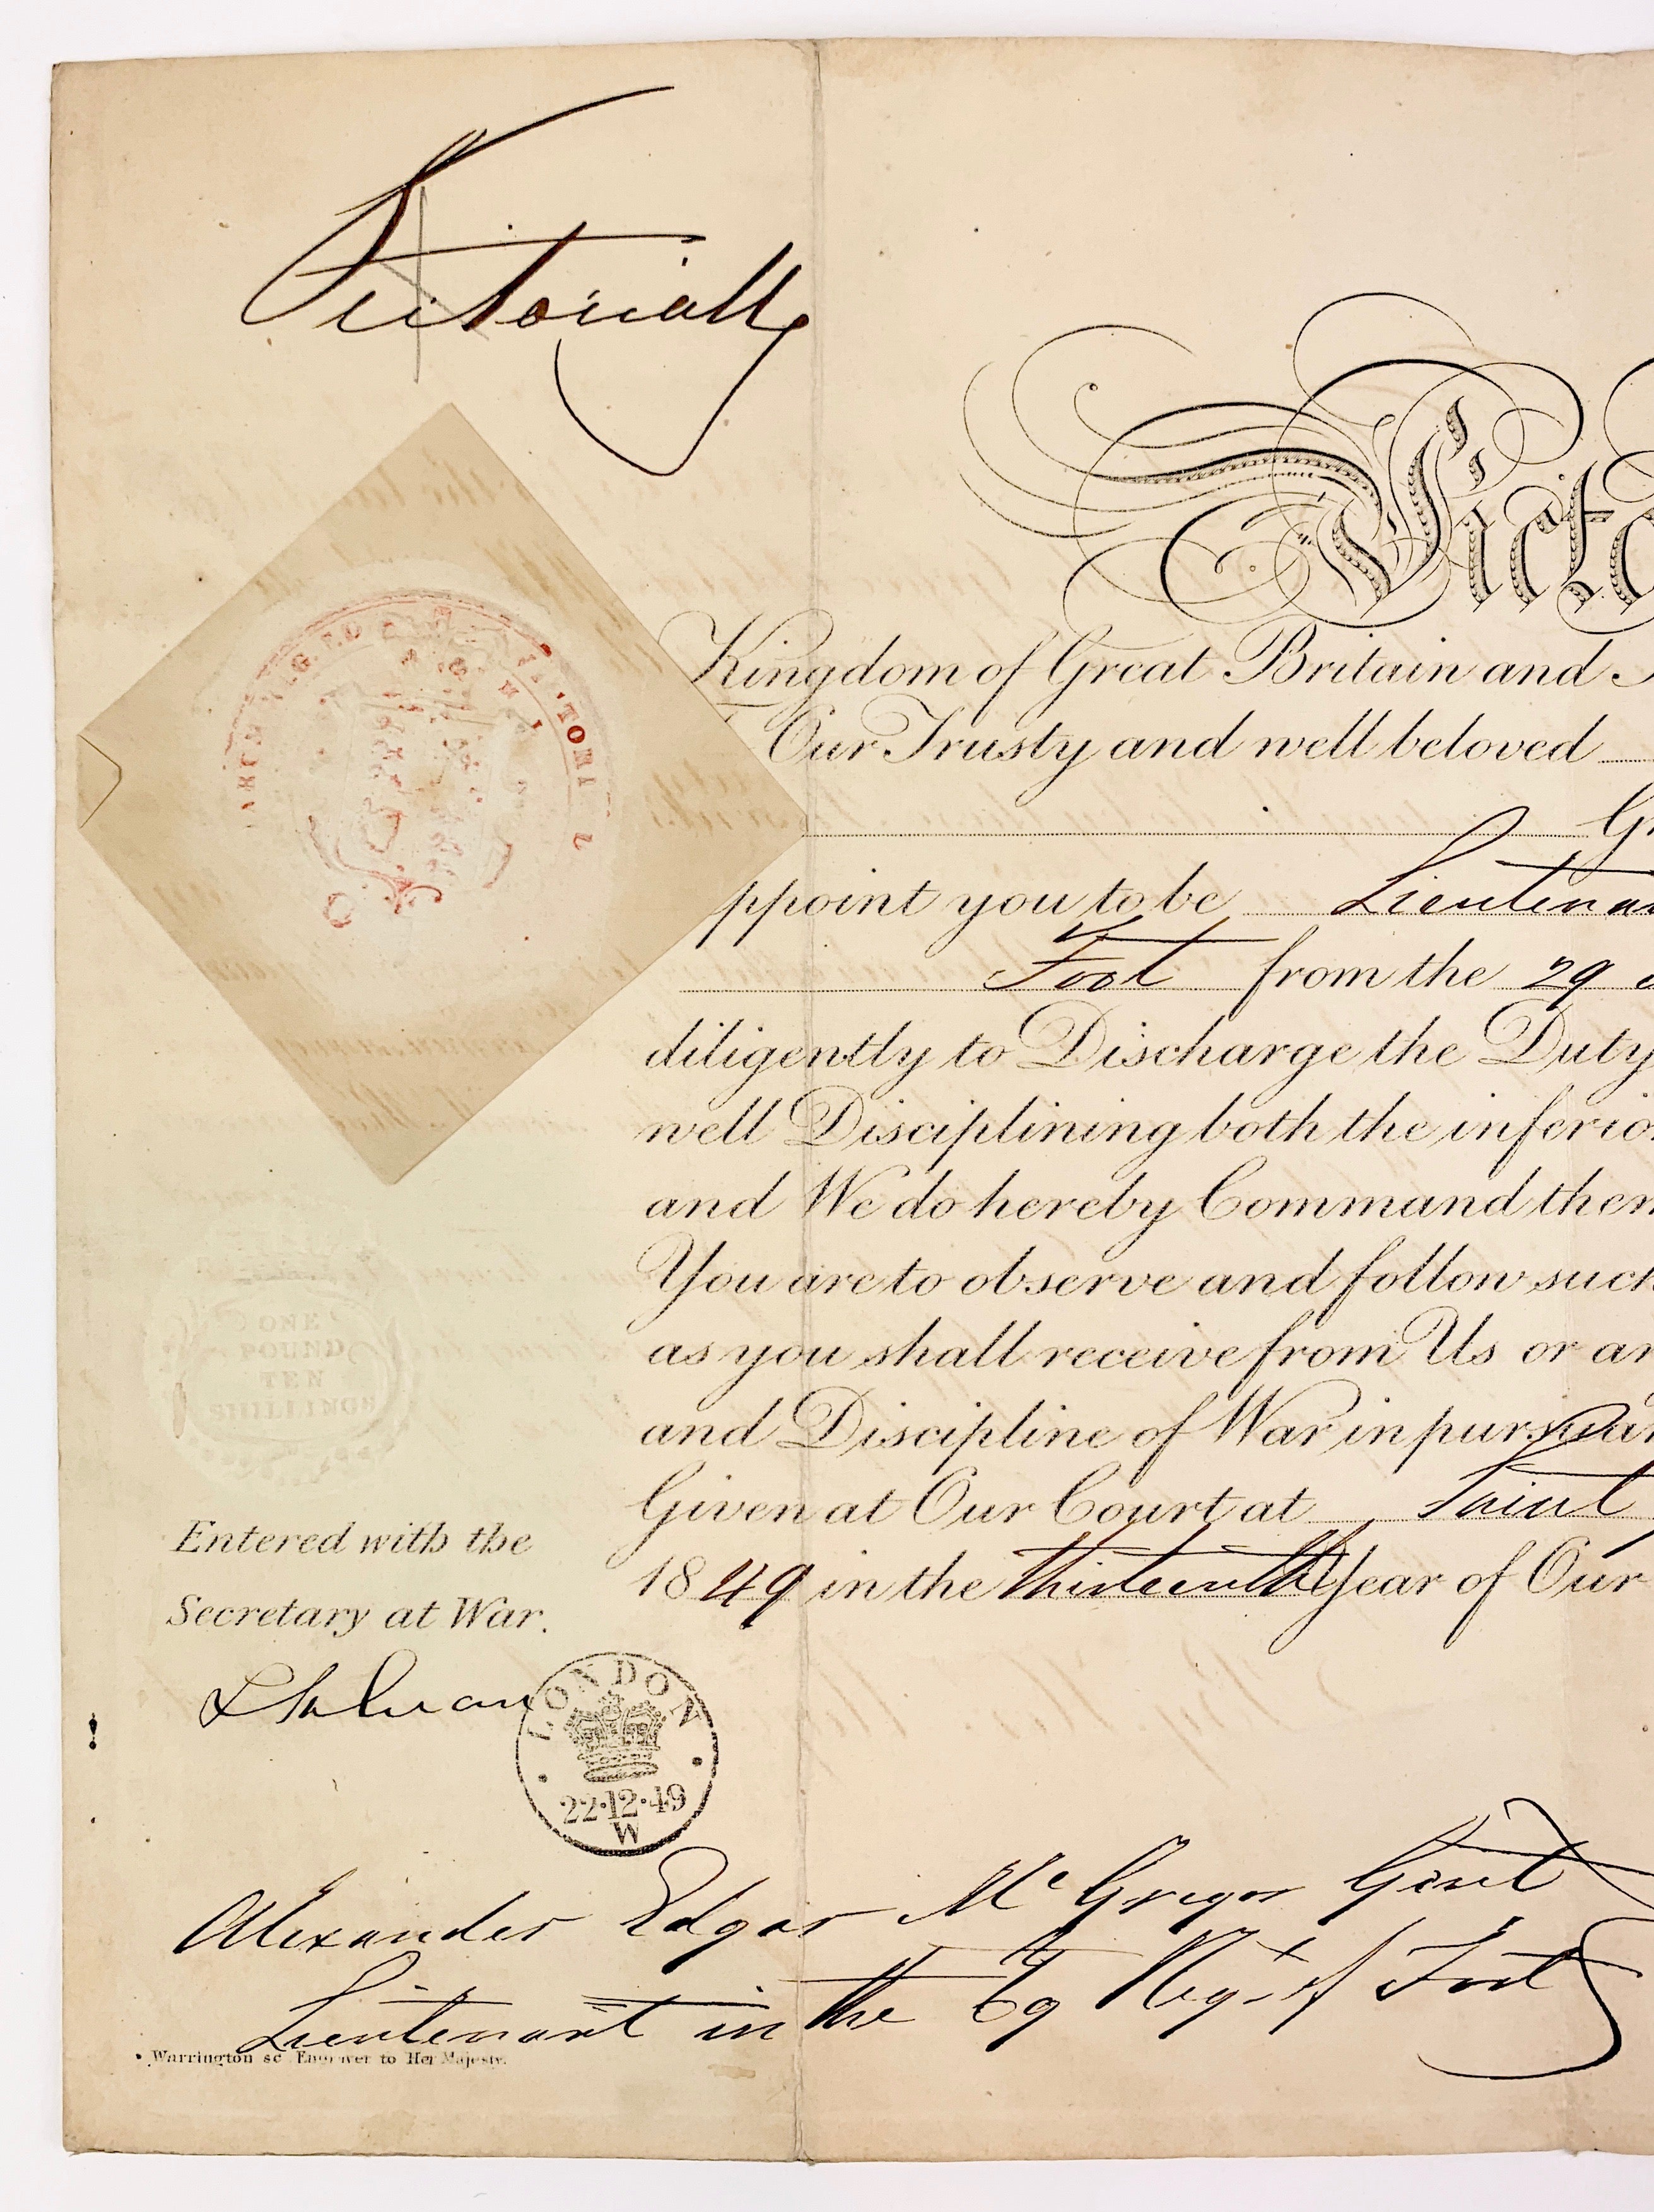 Victoria R
Victo
Kingdom of Great Britain and
Our Trusty and well beloved
Gr
ppoint you to be Lieutenan
Foot from the 29
diligently to Discharge the Duty
well Disciplining both the inferio
and We do hereby Command them
You are to observe and follow such
as you shall receive from Us or an
and Discipline of War in pursuan
Given at Our Court at Saint
1849 in the thirteenth Year of Our
ONE
POUND
TEN
SHILLINGS
Entered with the
Secretary at War.
LONDON
22·12·49
W
Alexander Edgar McGregor Gent
Lieutenant in the 69 Regt of Foot
Warrington sc Engraver to Her Majesty.